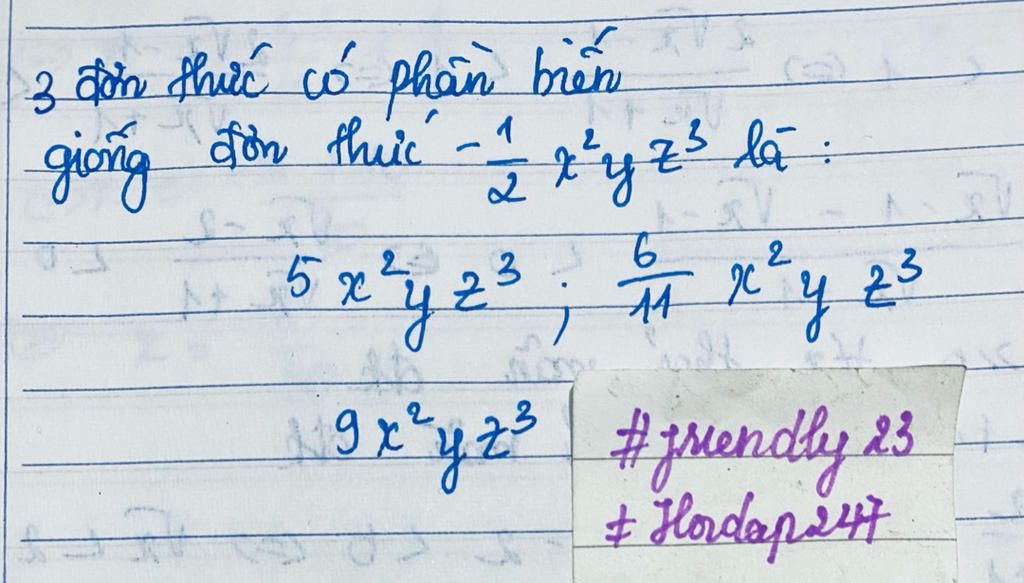 3 đơn thức có phần biến
giống đơn thức -1/2 x²yz³ là :
5x²yz³ ; 6/11 x²yz³
9x²yz³
#friendly23
# Hoidap247